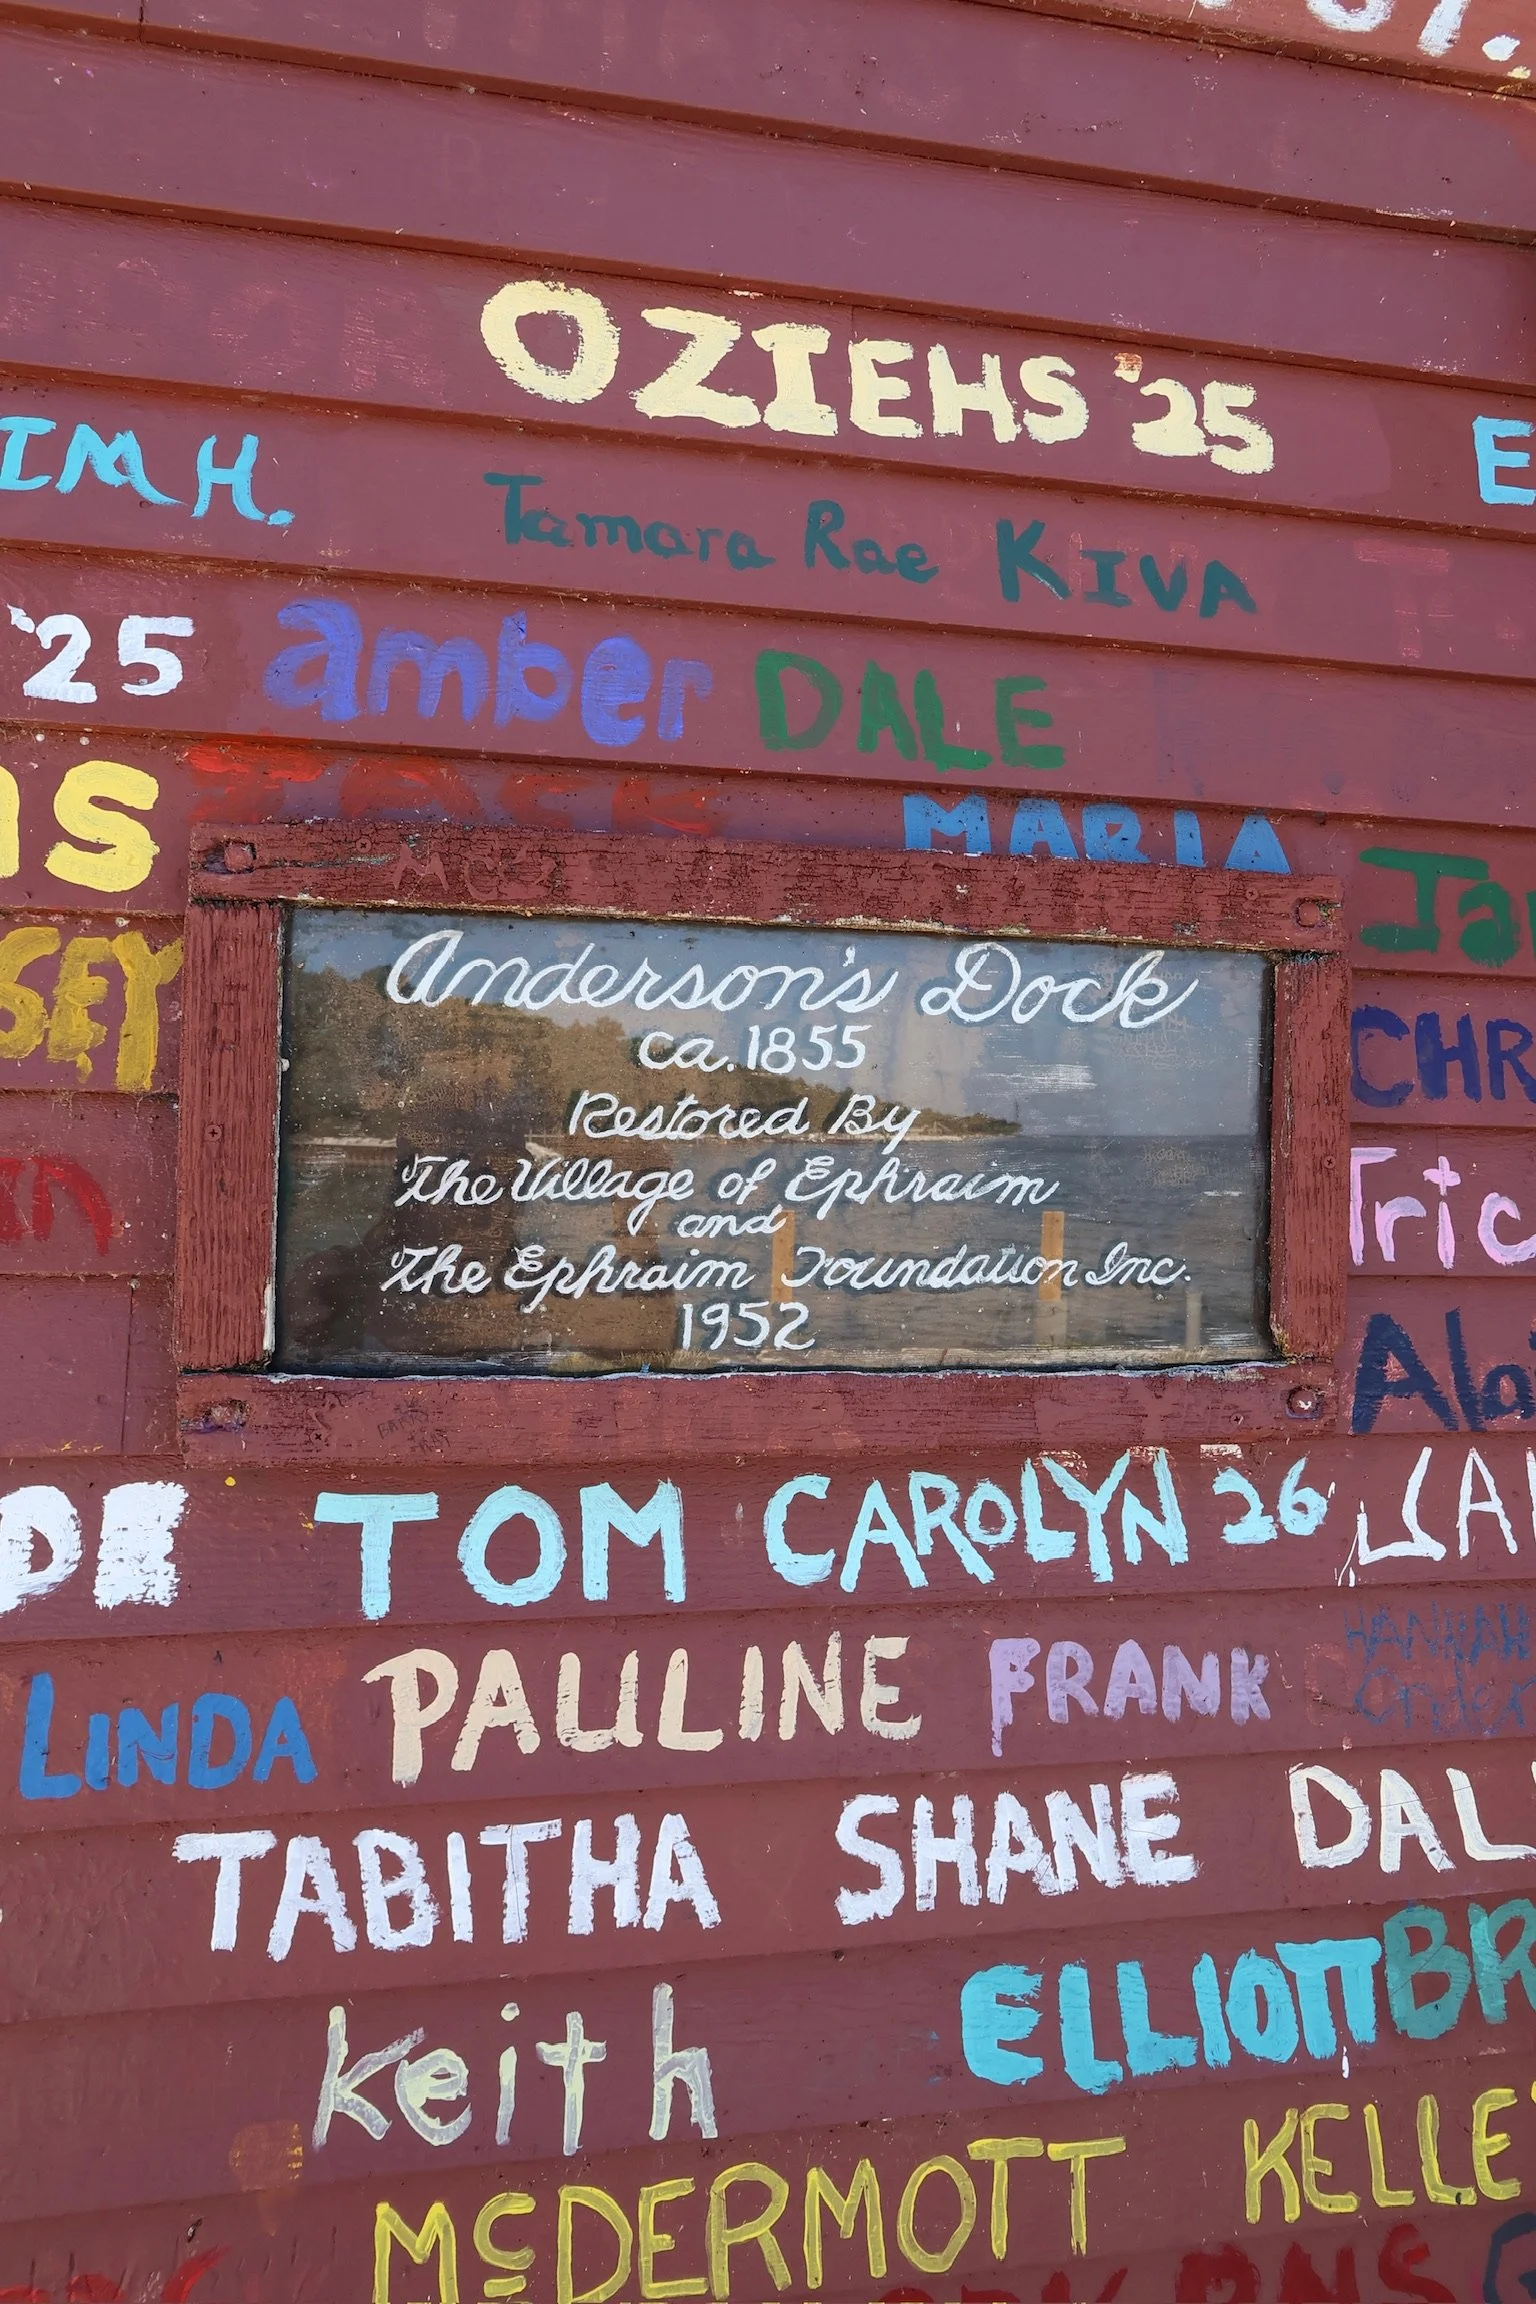 OZIEHS '25
IM H.
E
Tamara Rae KIVA
'25 amber DALE
MARIA
Anderson's Dock
ca. 1855
Restored By
The Village of Ephraim
and
The Ephraim Foundation Inc.
1952
SEY
CHR
Tric
TOM CAROLYN 26
LINDA PAULINE FRANK HANNAH
TABITHA SHANE DAL
keith ELLIOTT BR
McDERMOTT KELLE